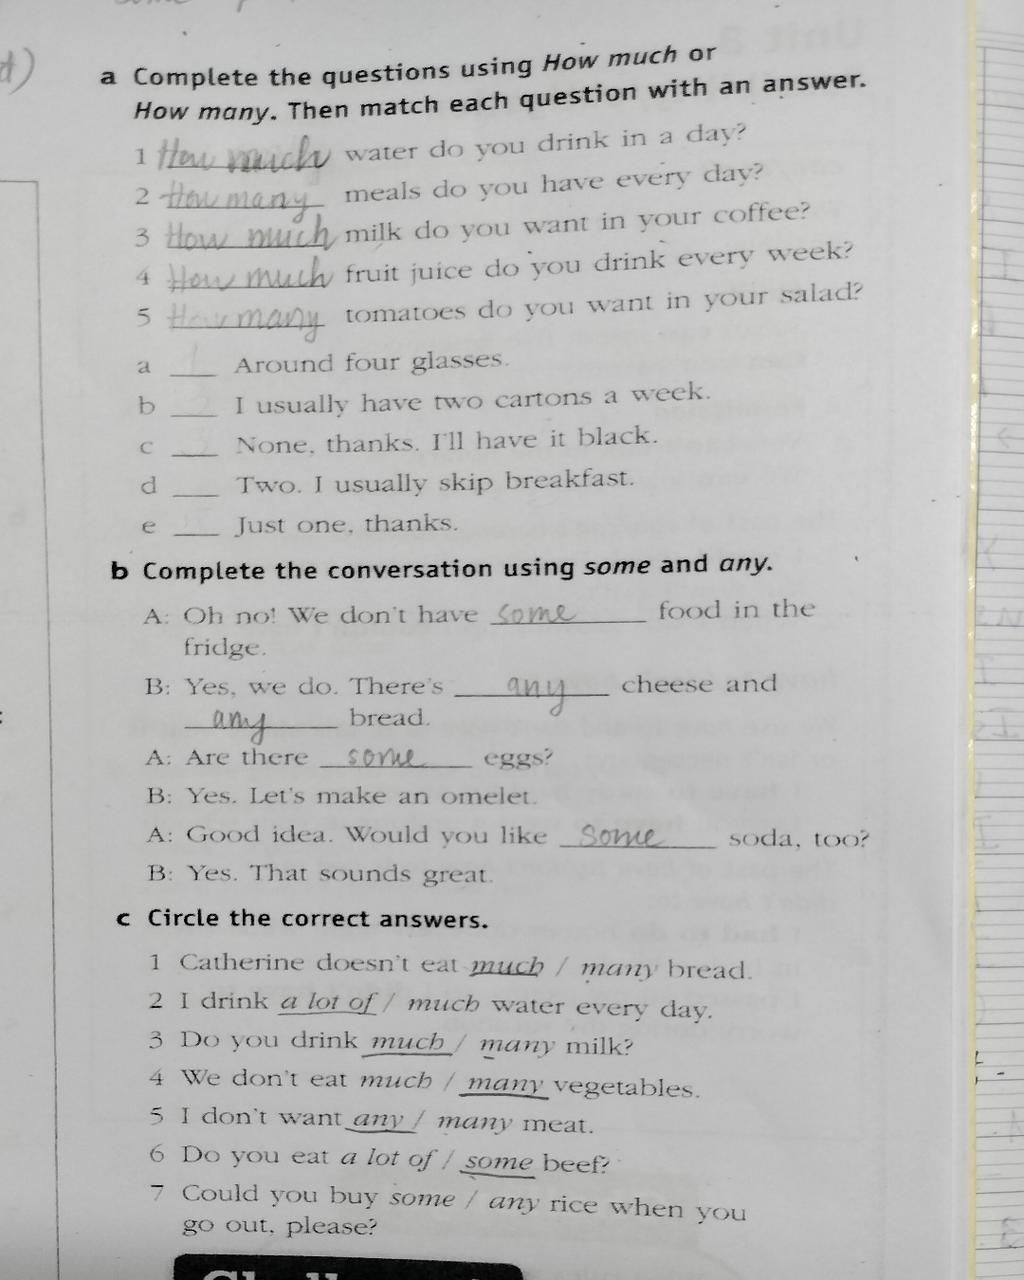 a Complete the questions using How much or
How many. Then match each question with an answer.
1 How much water do you drink in a day?
2 How many meals do you have every day?
3 How much milk do you want in your coffee?
4 How much fruit juice do you drink every week?
5 How many tomatoes do you want in your salad?
a ___ Around four glasses.
b ___ I usually have two cartons a week.
c ___ None, thanks. I'll have it black.
d ___ Two. I usually skip breakfast.
e ___ Just one, thanks.
b Complete the conversation using some and any.
A: Oh no! We don't have some food in the
fridge.
B: Yes, we do. There's any cheese and
any bread.
A: Are there some eggs?
B: Yes. Let's make an omelet.
A: Good idea. Would you like some soda, too?
B: Yes. That sounds great.
c Circle the correct answers.
1 Catherine doesn't eat much / many bread.
2 I drink a lot of / much water every day.
3 Do you drink much / many milk?
4 We don't eat much / many vegetables.
5 I don't want any / many meat.
6 Do you eat a lot of / some beef?
7 Could you buy some / any rice when you
go out, please?